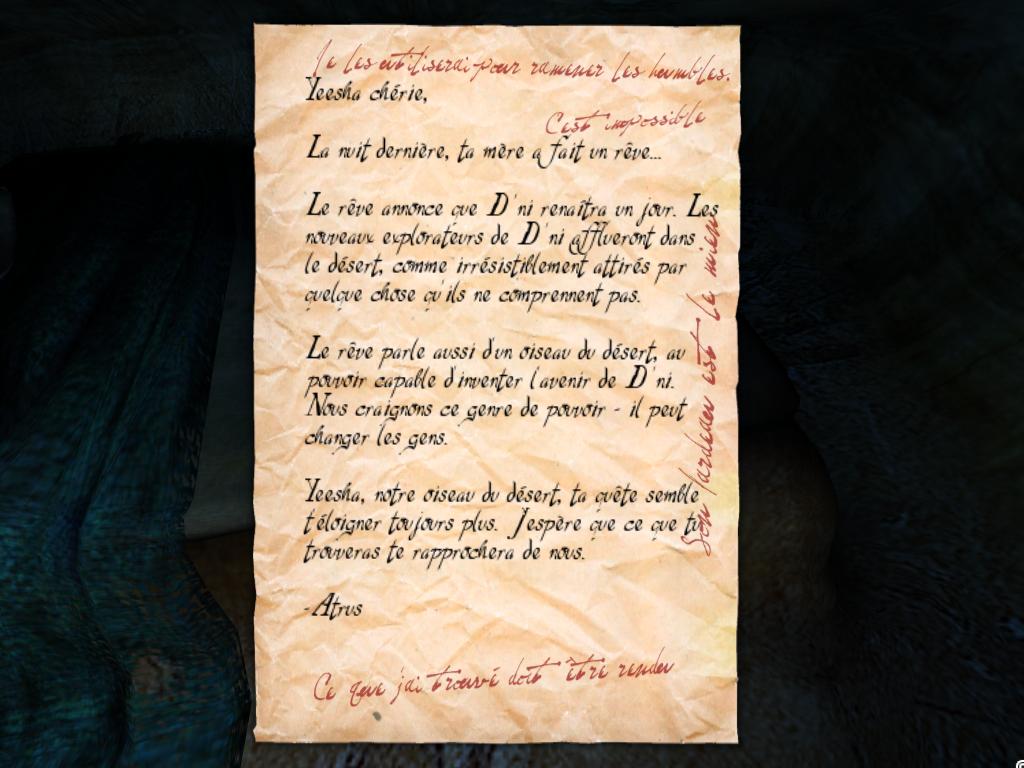 Je les utiliserai pour ramener les humbles.
Yeesha chérie,
C'est impossible
La nuit dernière, ta mère a fait un rêve...
Le rêve annonce que D'ni renaîtra un jour. Les
nouveaux explorateurs de D'ni afflueront dans
le désert, comme irrésistiblement attirés par
quelque chose qu'ils ne comprennent pas.
Le rêve parle aussi d'un oiseau du désert, au
pouvoir capable d'inventer l'avenir de D'ni.
Nous craignons ce genre de pouvoir - il peut
changer les gens.
Yeesha, notre oiseau du désert, ta quête semble
t'éloigner toujours plus. J'espère que ce que tu
trouveras te rapprochera de nous.
-Atrus
Son fardeau est le mien
Ce que j'ai trouvé doit être rendu